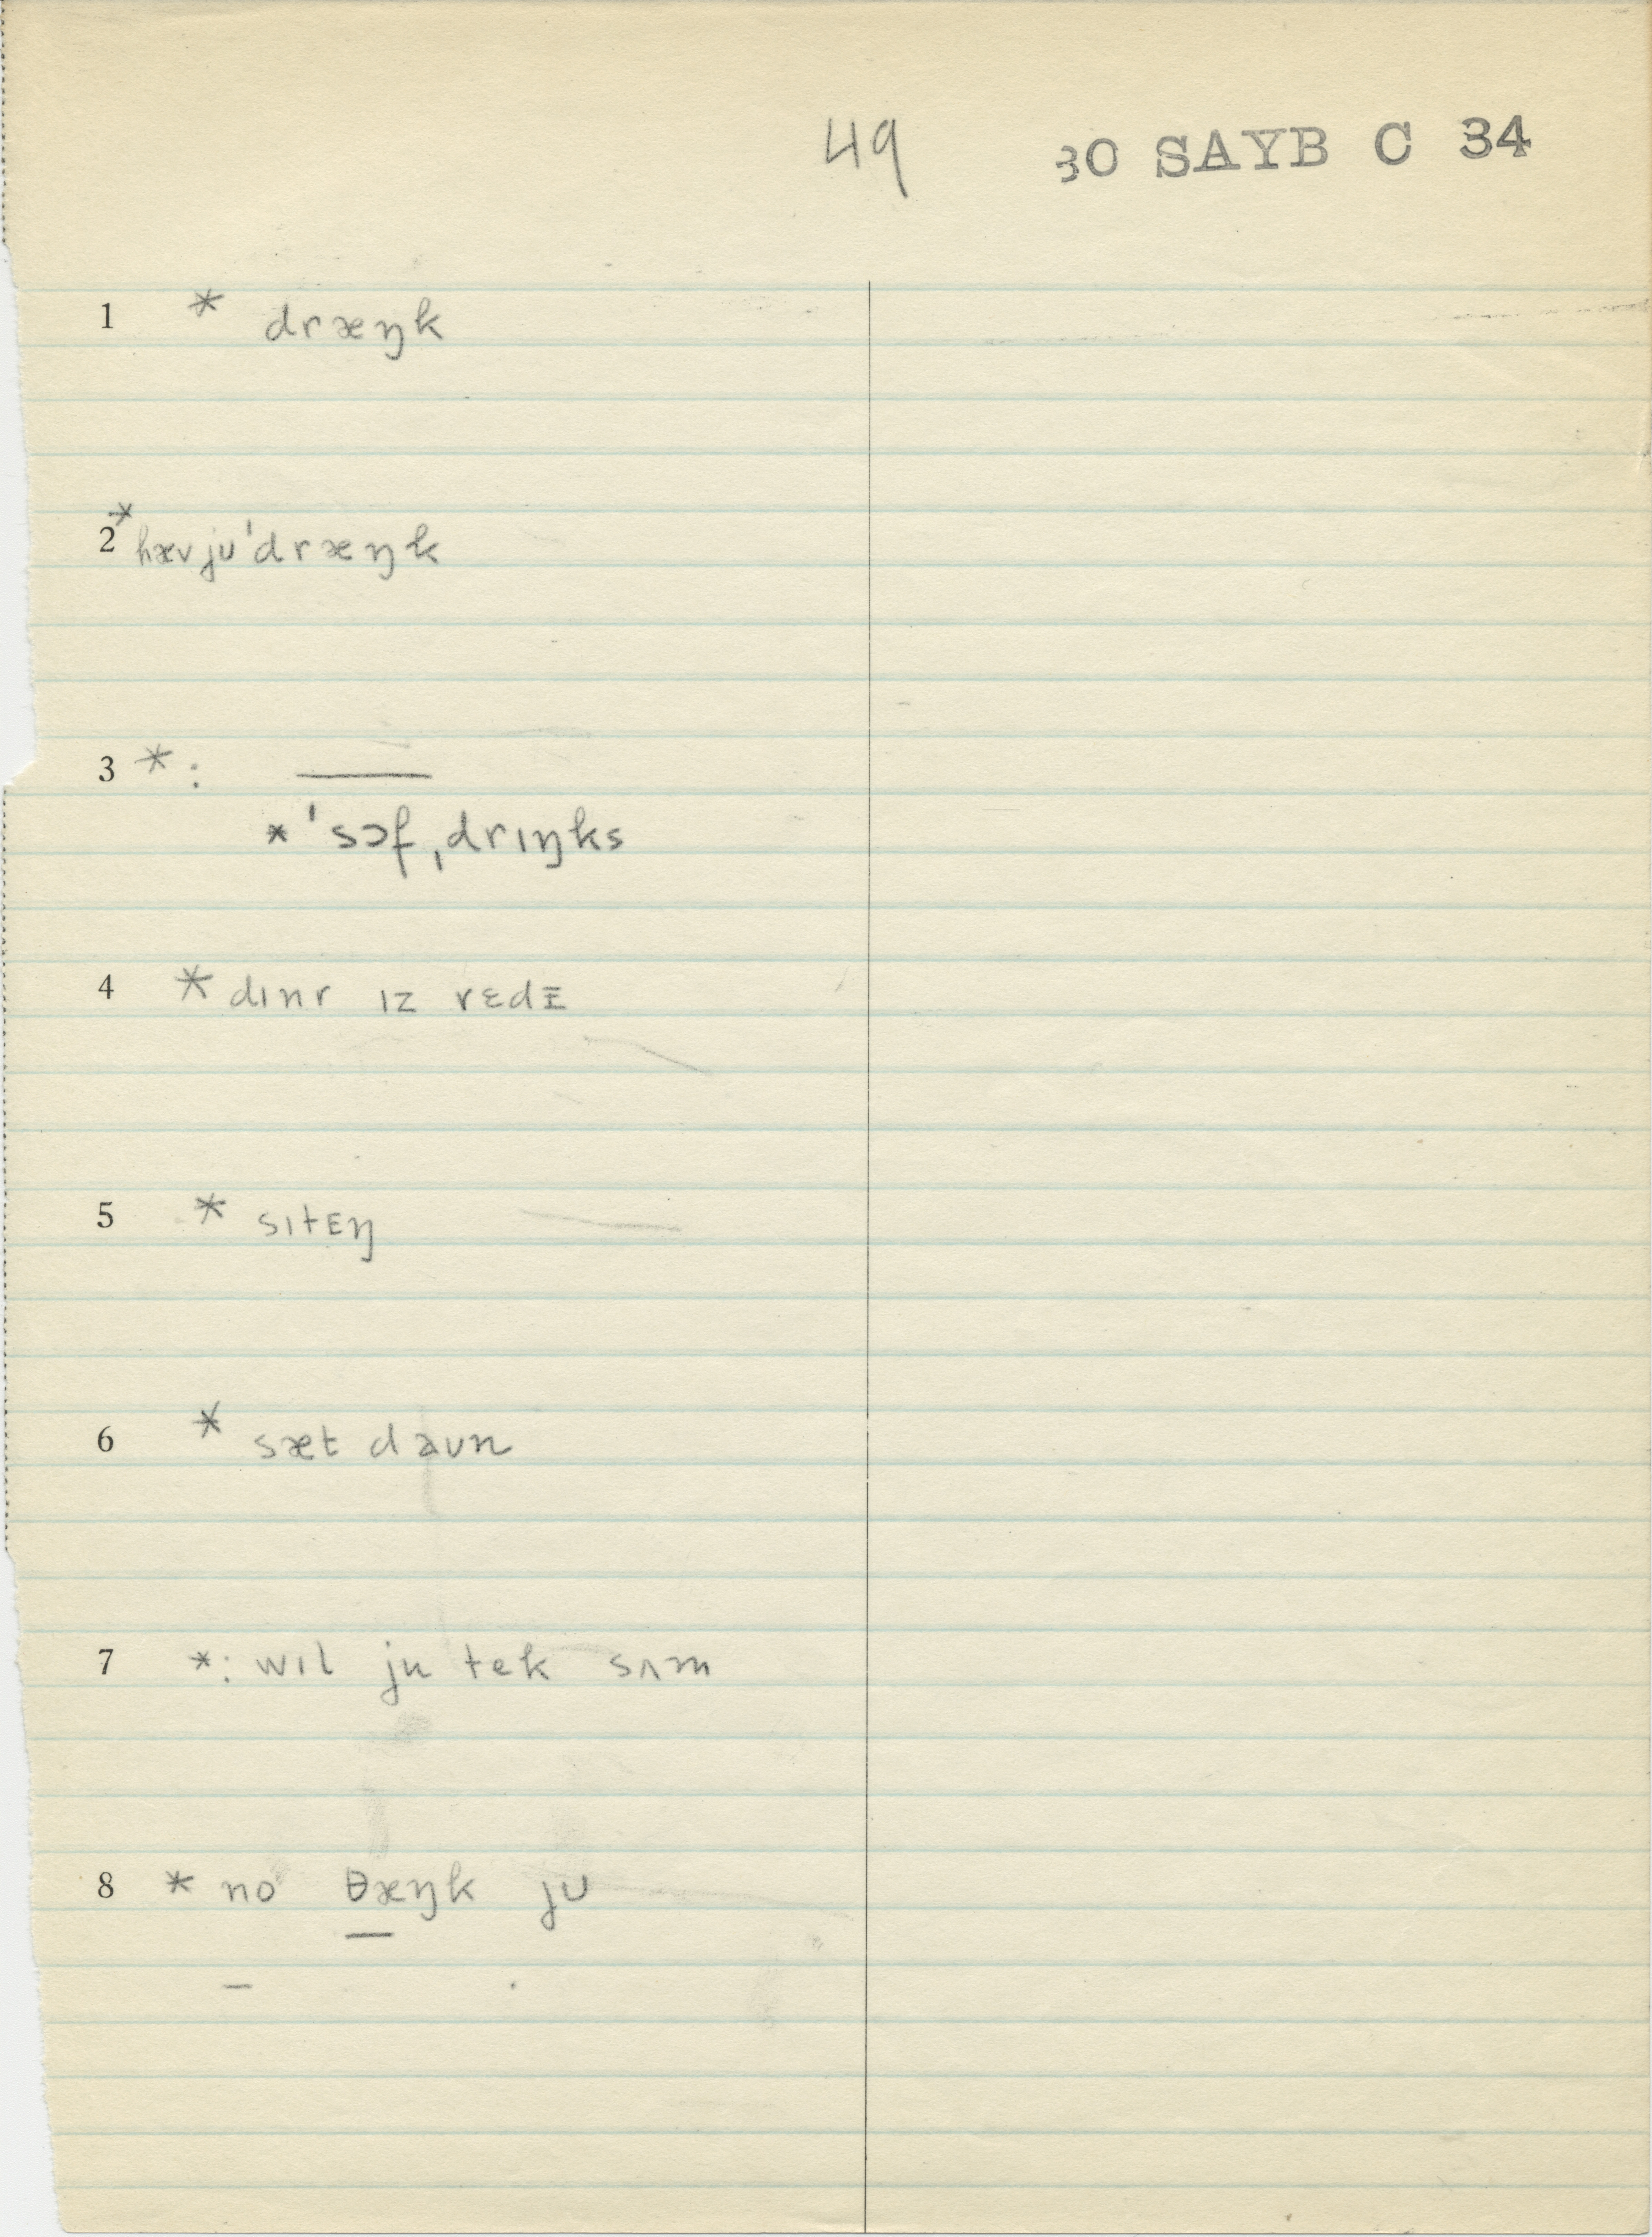 49 30 SAYB C 34
1 * dræŋk
2 * hævju'dræŋk
3 *: —
* 'sɔf ˌdrɪŋks
4 * dɪnr ɪz rɛdɪ
5 * sɪtɪŋ
6 * sæt daʊn
7 *: wɪl ju tek sʌm
8 * no θæŋk jʊ